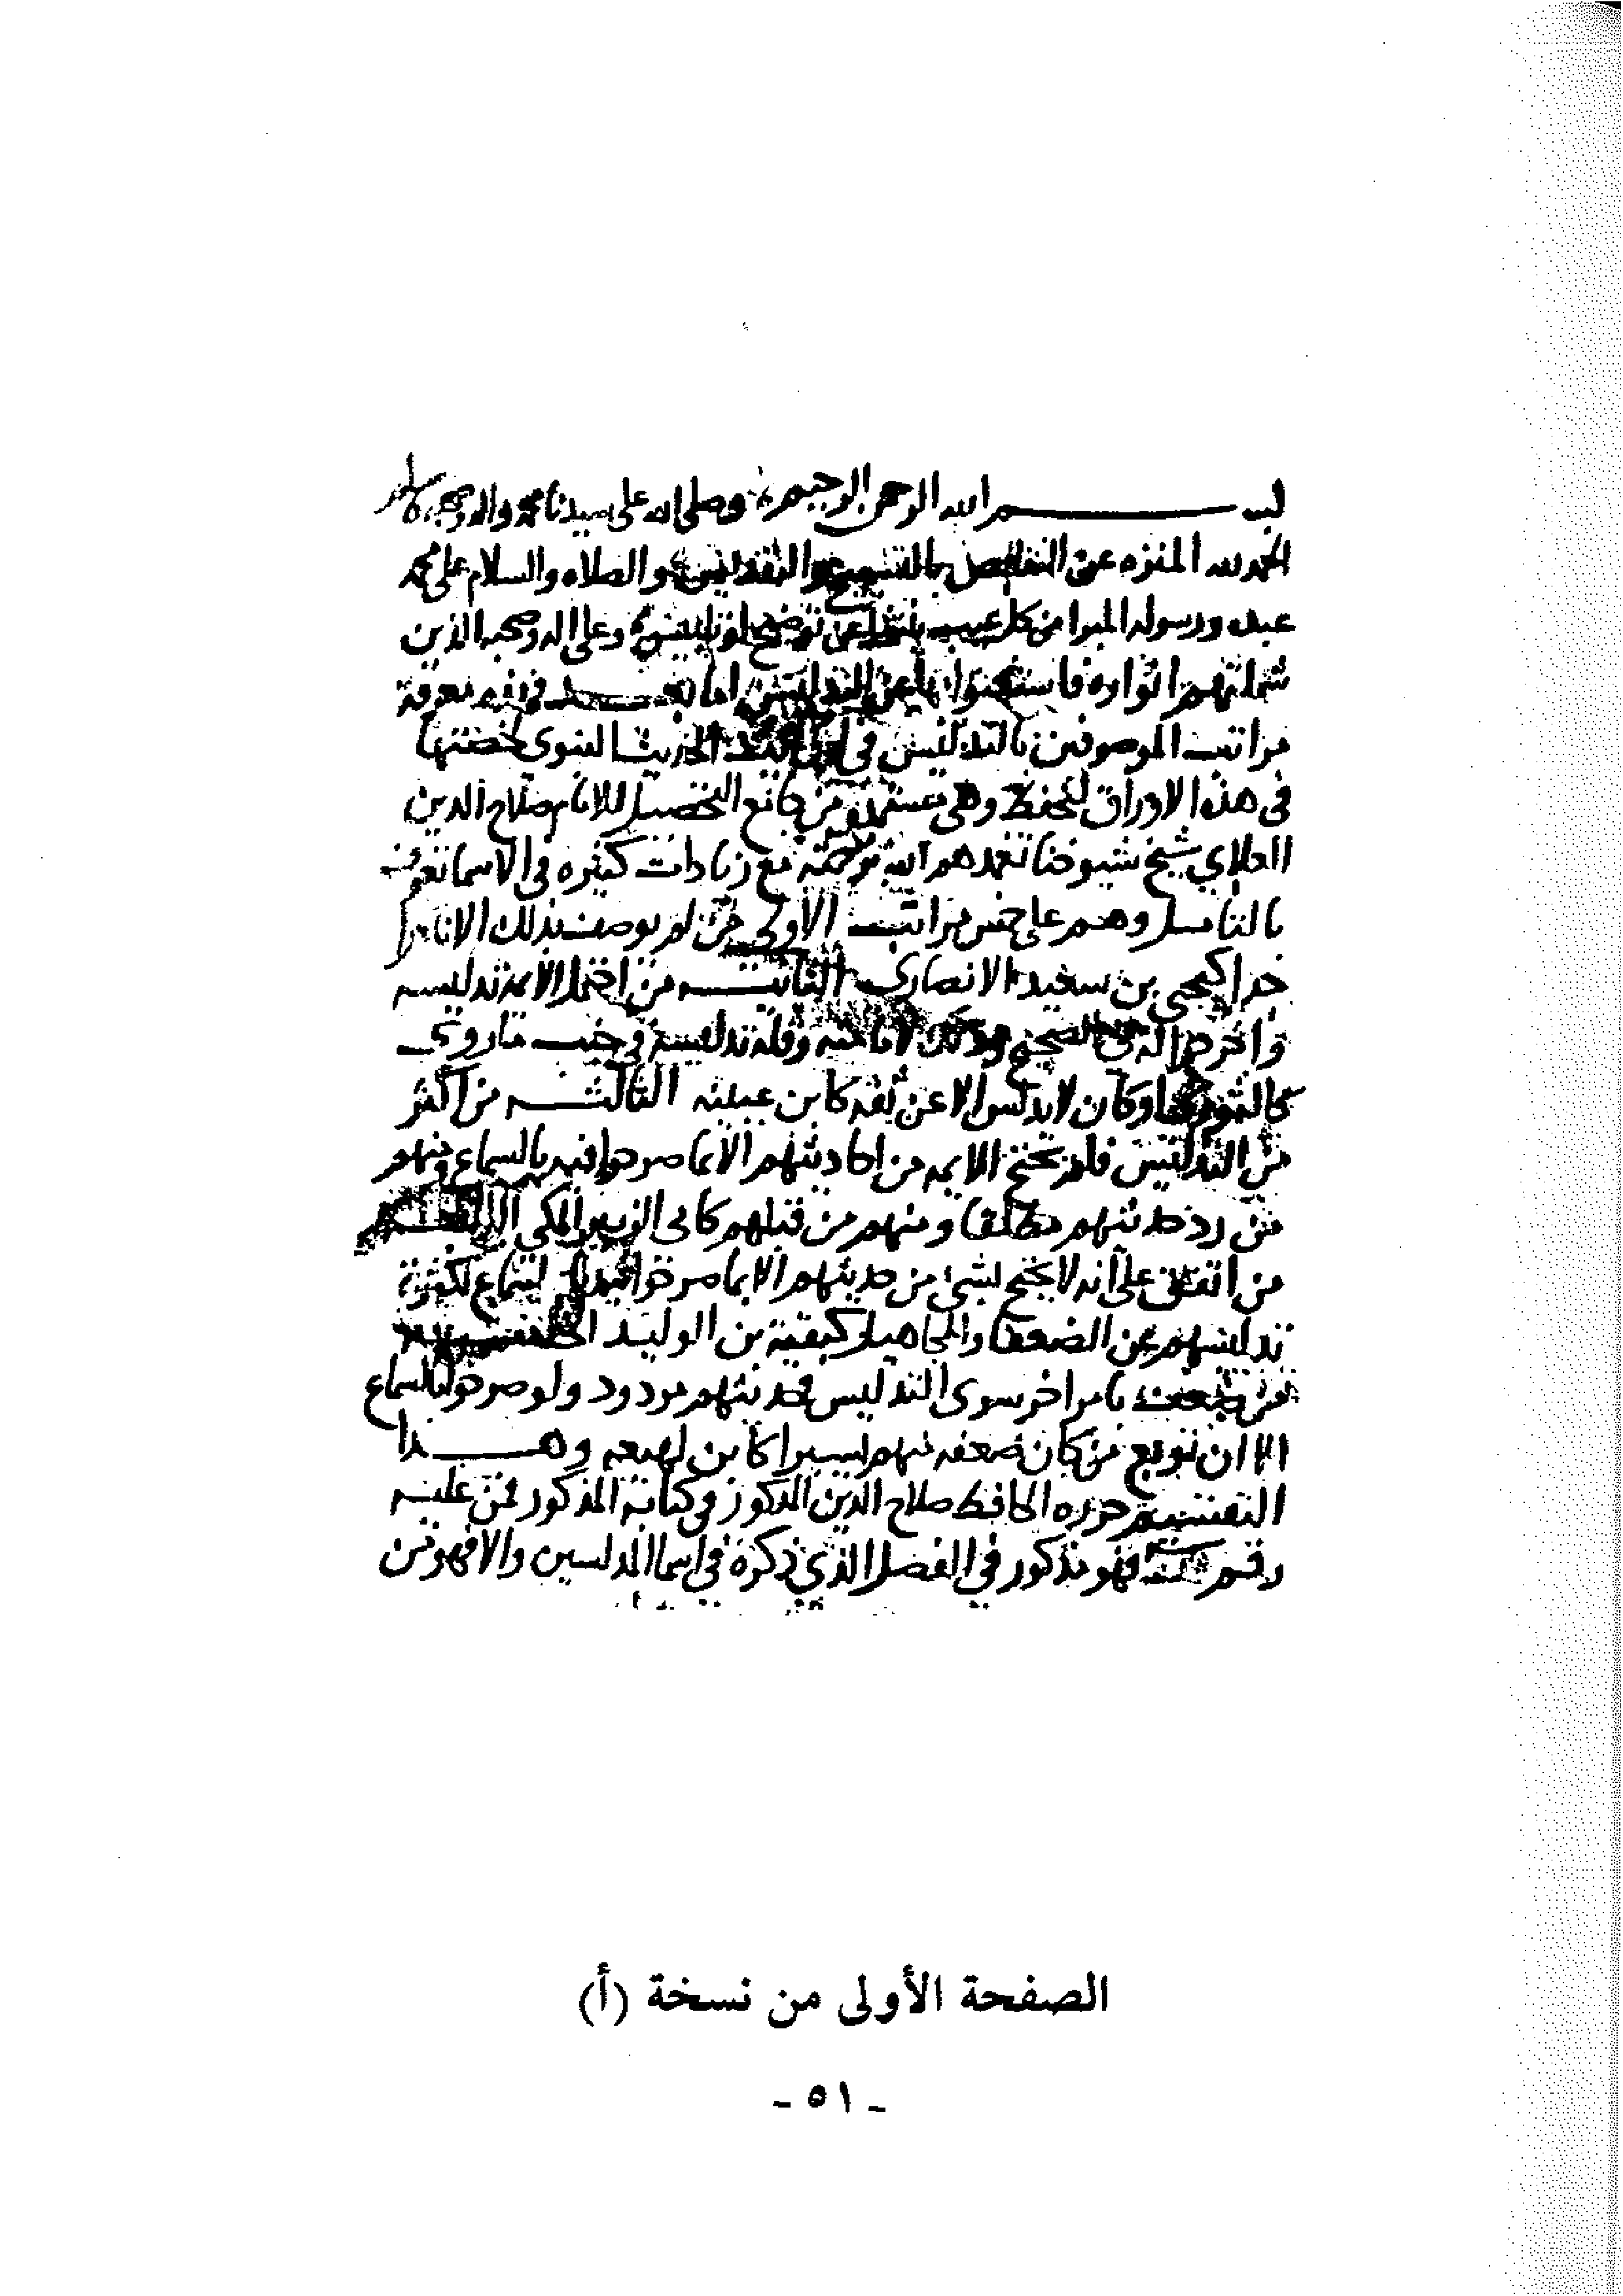 بسم الله الرحمن الرحيم وصلى الله على سيدنا محمد واله وصحبه وسلم
الحمد لله المنزه عن النقائص بالتسبيح والتقديس والصلاه والسلام على محمد
عبده ورسوله المبرا من كل عيب وعلى اله وصحبه الذين
شملتهم انواره عن التدليس اما بعد فهذه معرفة
مراتب الموصوفين بالتدليس في الحديث النبوى لخصتها
فى هذه الاوراق لتحفظ وهى مستمده من جامع التحصيل للامام صلاح الدين
العلاي شيخ شيوخنا تغمدهم الله برحمته مع زيادات كثيره فى الاسما تعرف
بالتامل وهم على خمس مراتب الاولى من لم يوصف بذلك الا نادرا
جدا كيحيى بن سعيد الانصارى الثانيه من احتمل الايمه تدليسه
واخرجوا له فى الصحيح لامامته وقلة تدليسه في جنب ما روى
كالثورى او كان لا يدلس الا عن ثقه كابن عيينه الثالثه من اكثر
من التدليس فلم يحتج الايمه من احاديثهم الا بما صرحوا فيه بالسماع ومنهم
من رد حديثهم مطلقا ومنهم من قبلهم كابى الزبير المكي الرابعه
من اتفق على انه لا يحتج بشئ من حديثهم الا بما صرحوا فيه بالسماع لكثرة
تدليسهم عن الضعفا والمجاهيل كبقية بن الوليد الخامسه
من ضعف بامر اخر سوى التدليس فحديثهم مردود ولو صرحوا بالسماع
الا ان توبع من كان ضعفه منهم يسيرا كابن لهيعه وهذا
التقسيم حرره الحافظ صلاح الدين المذكور في كتابه المذكور فمن عليه
رقم فهو مذكور في الفصل الذي ذكره في اسما المدلسين والا فهو من
الصفحة الأولى من نسخة (أ)
- ٥١ -